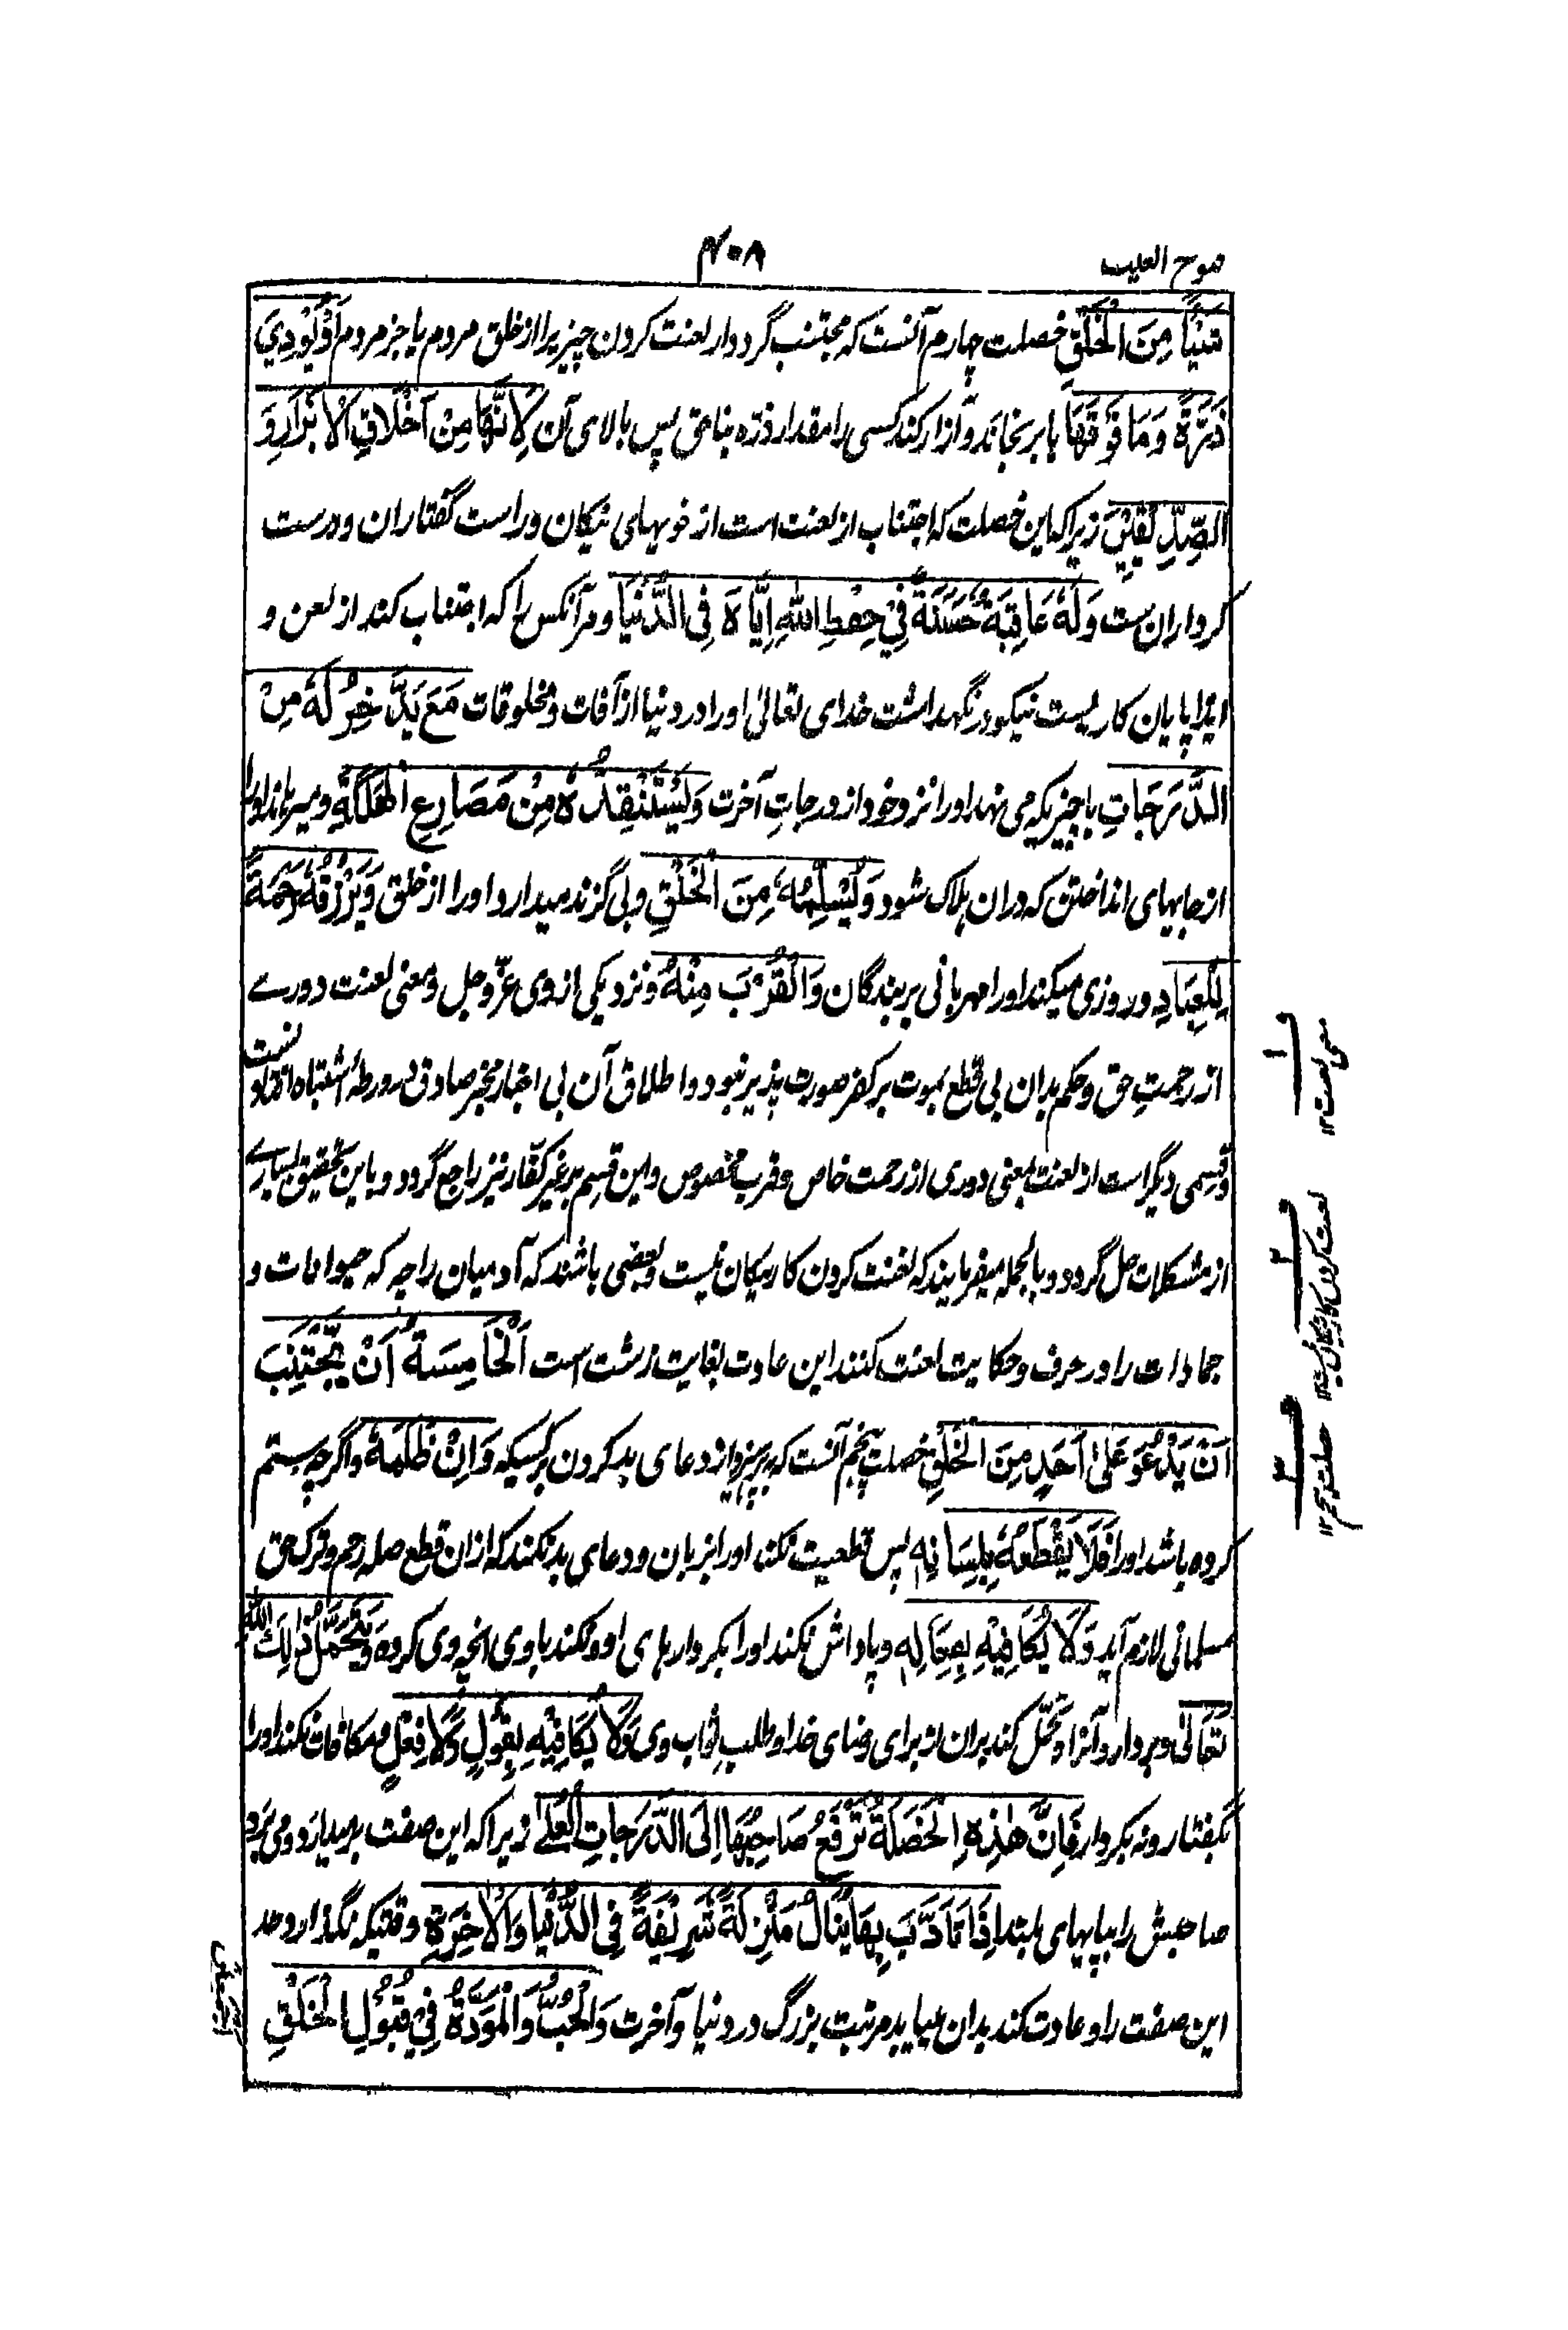 فتوح الغیب
۴۰۸
شَيْئًا مِنَ الْخَلْقِ خصلت چهارم آنست که مجتنب گردد از لعنت کردن چیزیرا از خلق مردم یا جز مردم اَوْ يُؤْذِيَ
ذَرَّةً وَمَا فَوْقَهَا یا برنجاند و آزار کند کسی را مقدار ذرّه بناحق پس بالای آن لِاَنَّهَا مِنْ اَخْلَاقِ الْاَبْرَارِ وَ
الصِّدِّيْقِيْنَ زیرا که این خصلت که اجتناب از لعنت است از خویهای نیکان و راست گفتاران و درست
کرداران ست وَلَهٗ عَاقِبَةٌ حَسَنَةٌ فِيْ حِفْظِ اللهِ اِيَّاهُ فِى الدُّنْيَا و مر آنکس را که اجتناب کند از لعن و
ایذا پایان کاریست نیکو در نگهداشت خدای تعالیٰ او را در دنیا از آفات و مخلوقات مَعَ مَا يَدَّخِرُ لَهٗ مِنَ
الدَّرَجَاتِ با چیزیکه می نهد او را نزد خود از درجاتِ آخرت وَيَسْتَنْقِذُهٗ مِنْ مَصَارِعِ الْهَلَكَةِ و میرهاند او را
از جایهای انداختن که دران هلاک شود وَيُسَلِّمُهٗ مِنَ الْخَلْقِ و بی گزند میدارد او را از خلق وَيَرْزُقُهٗ رَحْمَةً
لِلْعِبَادِ و روزی میکند او را مهربانی بر بندگان وَالْقُرْبَ مِنْهُ و نزدیکی از وی عزّوجل و معنی لعنت دورے
از رحمتِ حق و حکم بدان بی قطع بموت بر کفر صورت پذیر نبود و اطلاق آن بی اخبار مخبر صادق در ورطهٔ اشتباه افتاد نست
و قسمی دیگر است از لعنت بمعنی دوری از رحمت خاص و قرب مخصوص و این قسم بر غیر کفّار نیز راجع گردد و باین تحقیق بسیارے
از مشکلات حل گردد و بالجمله میفرمایند که لعنت کردن کار نیکان نیست و بعضی باشند که آدمیان را چه که حیوانات و
جمادات را در حرف و حکایت لعنت کنند این عادت بغایت زشت است اَلْخَامِسَةُ اَنْ يَجْتَنِبَ
اَنْ يَدْعُوَ عَلٰى اَحَدٍ مِنَ الْخَلْقِ خصلت پنجم آنست که بپرهیزد از دعای بد کردن بر کسیکه وَاِنْ ظَلَمَهٗ و اگرچه ستم
کرده باشد او را فَلَا يَقْطَعُهٗ بِلِسَانِهٖ پس قطعیت نکند او را بزبان و دعای بد نکند که ازان قطع صله رحم و ترک حق
مسلمانی لازم آید وَلَا يُكَافِيْهِ بِفِعَالِهٖ و پاداش نکند او را بکردارهای او و نکند با وی انچه وی کرده وَيَتَحَمَّلُ ذٰلِكَ لِلّٰهِ
تَعَالٰى و بردارد آنرا و تحمّل کند بران از برای رضای خدا و طلب ثواب وی وَلَا يُكَافِيْهِ بِقَوْلٍ وَّلَا فِعْلٍ و مکافات نکند او را
بگفتار و نه بکردار فَاِنَّ هٰذِهِ الْخَصْلَةَ تَرْفَعُ صَاحِبَهَا اِلَى الدَّرَجَاتِ الْعُلٰى زیرا که این صفت برمیدارد و می برد
صاحبش را بپایهای بلند اِذَا تَاَدَّبَ بِهَا يَنَالُ مَنْزِلَةً شَرِيْفَةً فِى الدُّنْيَا وَالْاٰخِرَةِ وقتیکه نگذارد حد
این صفت را و عادت کند بدان میابد مرتبت بزرگ در دنیا و آخرت وَالْحُبَّ وَالْمَوَدَّةَ فِيْ قُبُوْلِ الْخَلْقِ
معنی لعنت ۱۲
لعنت کردن کار نیکان نیست ۱۲
خصلت پنجم ۱۲